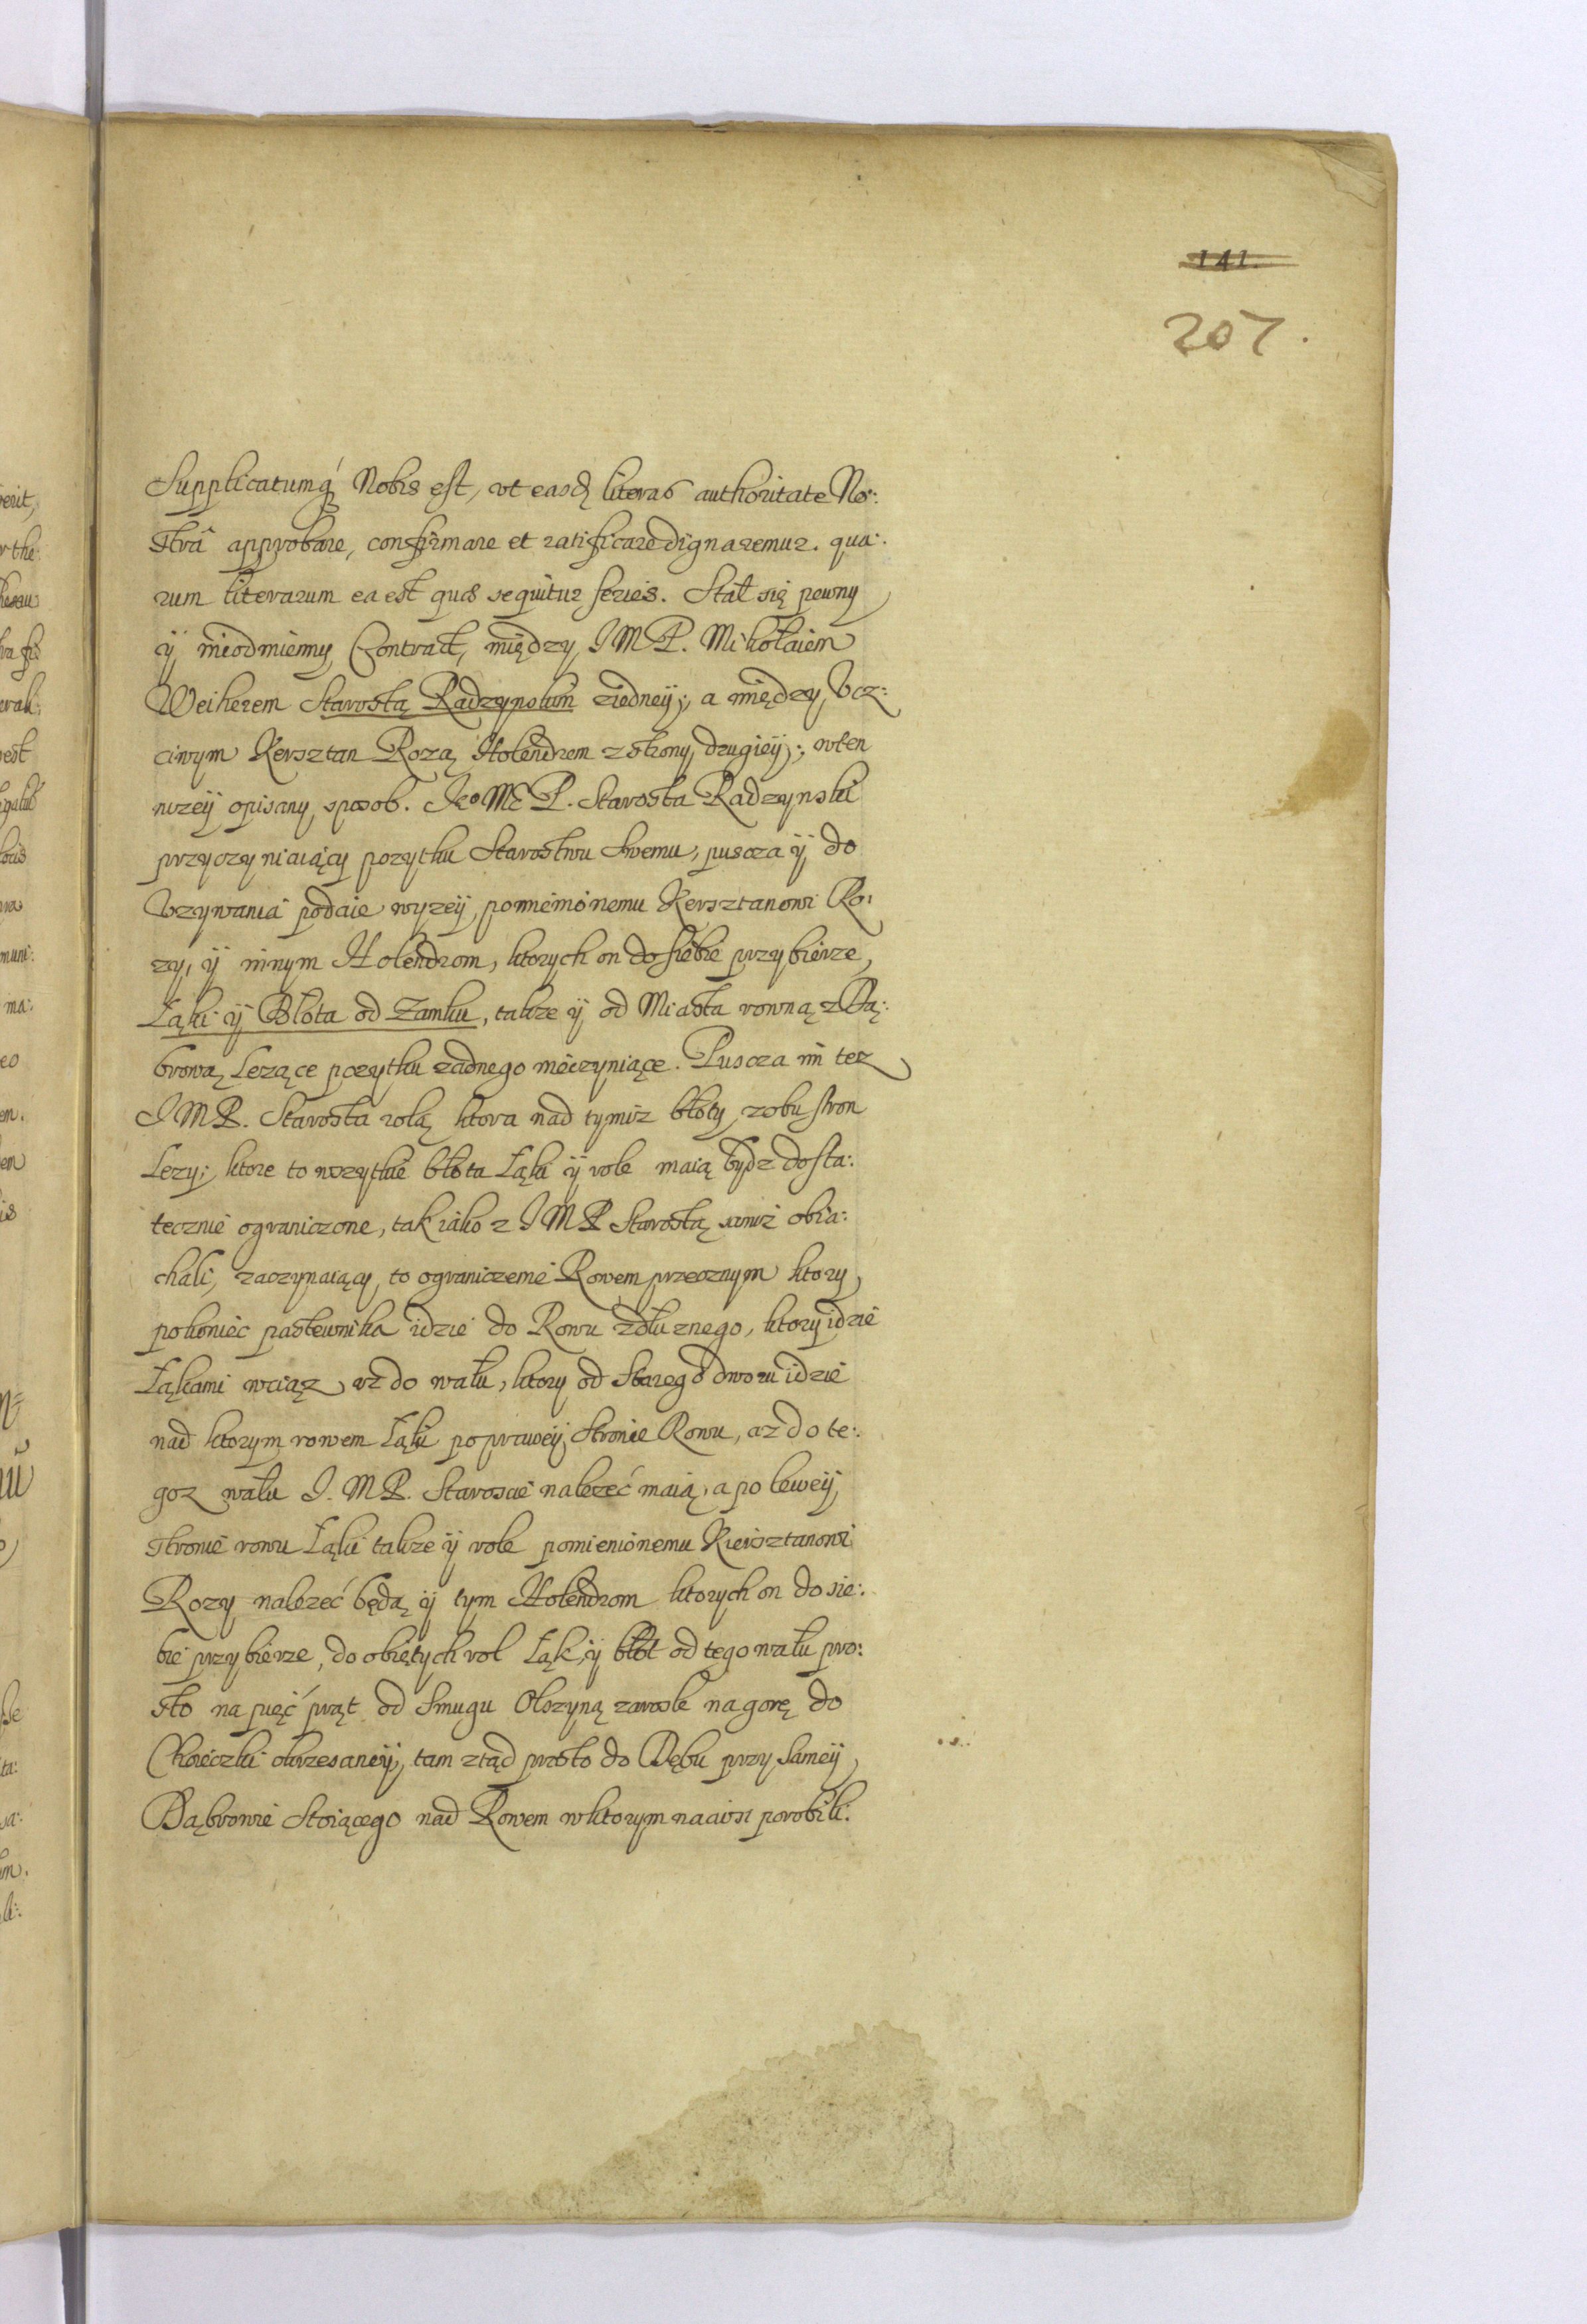 141.
207.
Supplicatumq́ Nobis est, vt easd literas authoritate No:
strâ approbare, confirmare et ratificare dignaremur. qua:
rum literarum ea est quae sequitur series. Stał się pewny
ÿ nieodmienny Contract, między J M P. Mikołaiem
Weiherem Starostą Radzynskim ziedneÿ, a między Vcz:
ciwym Kersztan Rozą Holendrem z strony drugieÿ; wten
nizeÿ opisany sposob. Jeo Mć P. Starosta Radzynski
przyczyniaiący pozytku Starostwu Swemu, puscza ÿ do
Vzywania podaie wyzeÿ pomienionemu Kersztanowi Ro:
zy, ÿ innym Holendrom, ktorych on do siebie przybierze,
Łąki ÿ Błota od Zamku, takze ÿ od Miasta rowną z Dą:
brową Lezące pozytku zadnego nieczyniące. Puscza im tez
J M P. Starosta rolą ktora nad tymisz błoty zobu stron
Lezy; ktore to wszytkie błota Łąki ÿ role maią bydz dosta:
tecznie ograniczone, tak iako z J M P Starostą sami obia:
chali, zaczynaiący to ograniczenie Rowem przecznym ktory
pokoniec pastewnika idzie do Rowu zdłuznego, ktory idzie
Łąkami wciąz vz do wału, ktory od Starego dworu idzie
nad ktorym rowem Łąki po praweÿ Stronie Rowu, az do te:
goz wału J. M P. Staroscie nalezeć maią, a po leweÿ
stronie rowu Łąki takze ÿ role pomienionemu Kiersztanowi
Rozy nalezeć będą ÿ tym Holendrom ktorych on do sie:
bie przybierze, do obiętych rol Łąk, ÿ błot od tego wału pro:
sto na pięć prąt od Smugu Olszyną zarosle na gorę do
Choieczki okrzesaneÿ, tam ztąd prosto do Dębu przy Sameÿ
Dąbrowie Stoiącego nad Rowem wktorym naciosi porobili.